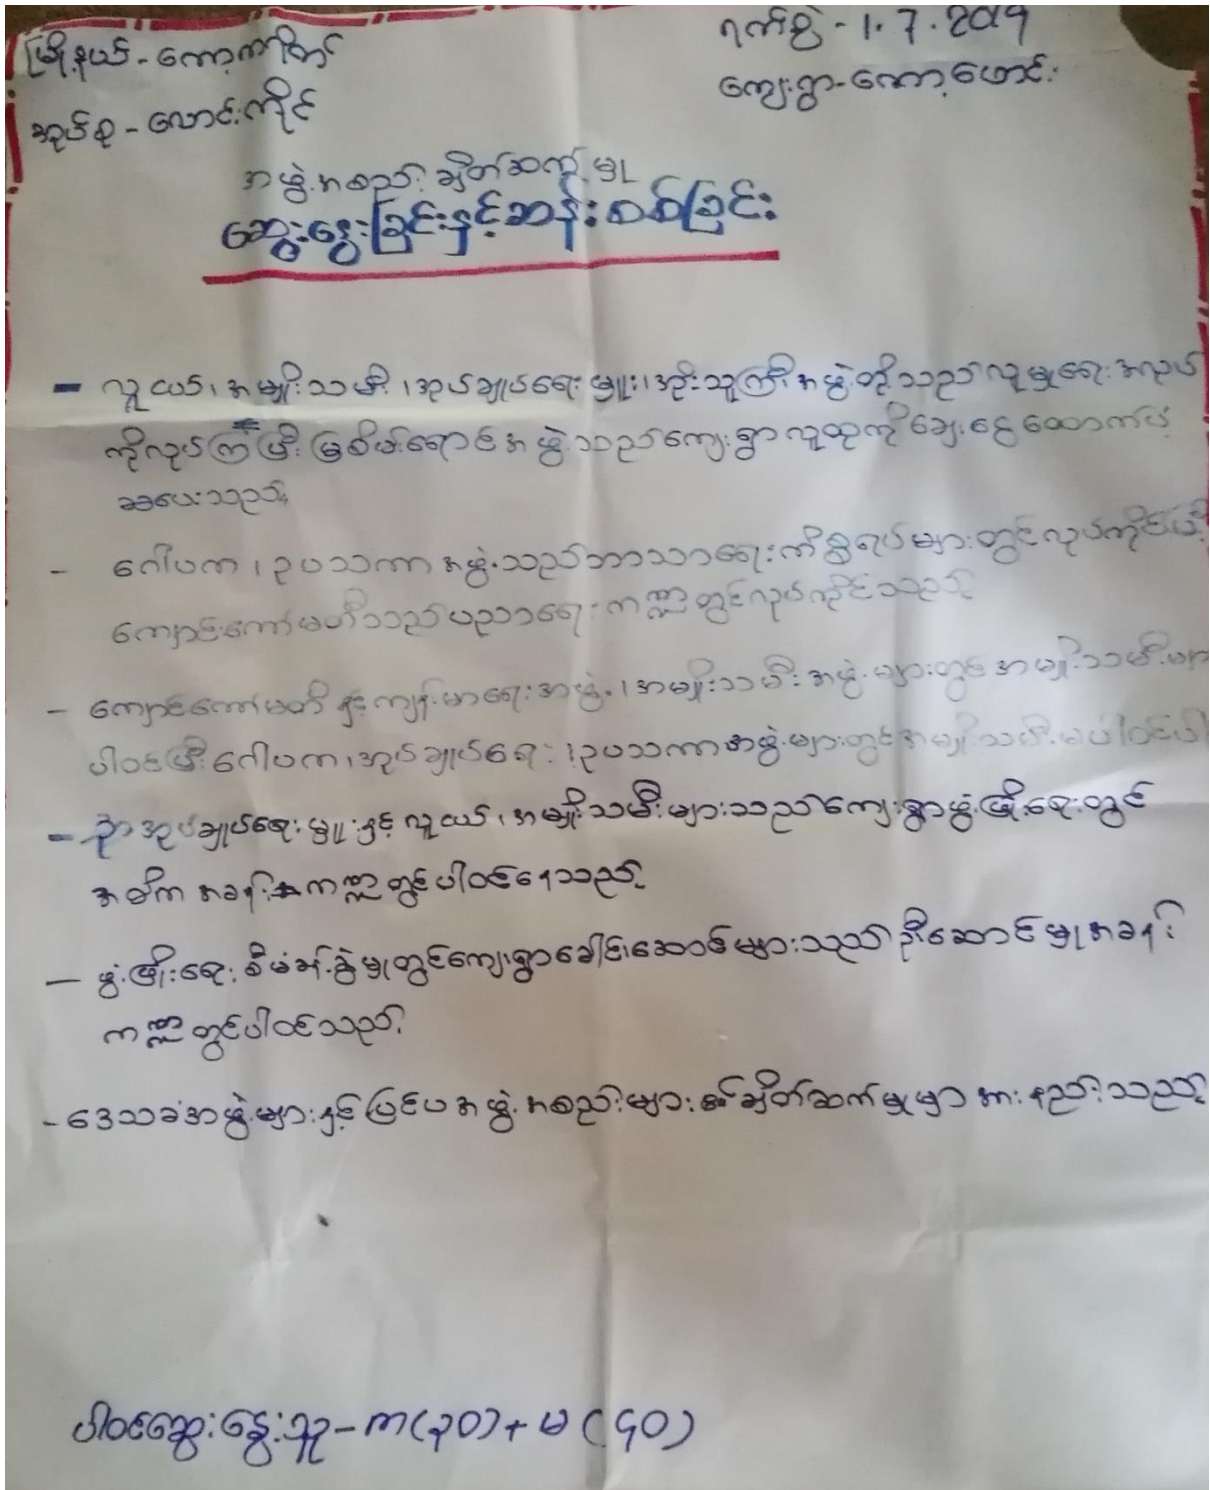 မြို့နယ် - ကော့ကရိတ်
ရက်စွဲ - 1.7.2019
ကျေးရွာ - ကော့ဖောင်း
အုပ်စု - လောင်းကိုင်
အဖွဲ့အစည်း ချိတ်ဆက်မှု
ဆွေးနွေးခြင်းနှင့်ဆန်းစစ်ခြင်း
- လူငယ်၊ အမျိုးသမီး၊ အုပ်ချုပ်ရေးမှူး၊ အကြီးအဖွဲ့တို့သည် လူမှုရေးအလုပ်
ကိုလုပ်ကြပြီး မြစိမ်းရောင်အဖွဲ့သည်ကျေးရွာလူထုကိုချေးငွေထောက်ပံ့
ပေးသည်။
- ဂေါပက၊ ဥပသကာအဖွဲ့သည်ဘာသာရေးကိစ္စရပ်များတွင်လုပ်ကိုင်ပြီး
ကျောင်းကော်မတီသည်ပညာရေးကဏ္ဍတွင်လုပ်ကိုင်သည်။
- ကျောင်းကော်မတီနှင့်ကျန်းမာရေးအဖွဲ့၊ အမျိုးသမီးအဖွဲ့များတွင်အမျိုးသမီးများ
ပါဝင်ပြီးဂေါပက၊ အုပ်ချုပ်ရေး၊ ဥပသကာအဖွဲ့များတွင်အမျိုးသမီးမပါဝင်ပါ
- အုပ်ချုပ်ရေးမှူးနှင့်လူငယ်၊ အမျိုးသမီးများသည်ကျေးရွာဖွံ့ဖြိုးရေးတွင်
အဓိကအခန်းကဏ္ဍတွင်ပါဝင်နေသည်။
- ဖွံ့ဖြိုးရေးစီမံခန့်ခွဲမှုတွင်ကျေးရွာခေါင်းဆောင်များသည် ဦးဆောင်မှုအခန်း
ကဏ္ဍတွင်ပါဝင်သည်။
- ဒေသခံအဖွဲ့များနှင့်ပြင်ပအဖွဲ့အစည်းများချိတ်ဆက်မှုမှာအားနည်းသည်။
ပါဝင်ဆွေးနွေးသူ - ကျ (၃၀) + မ (၄၀)